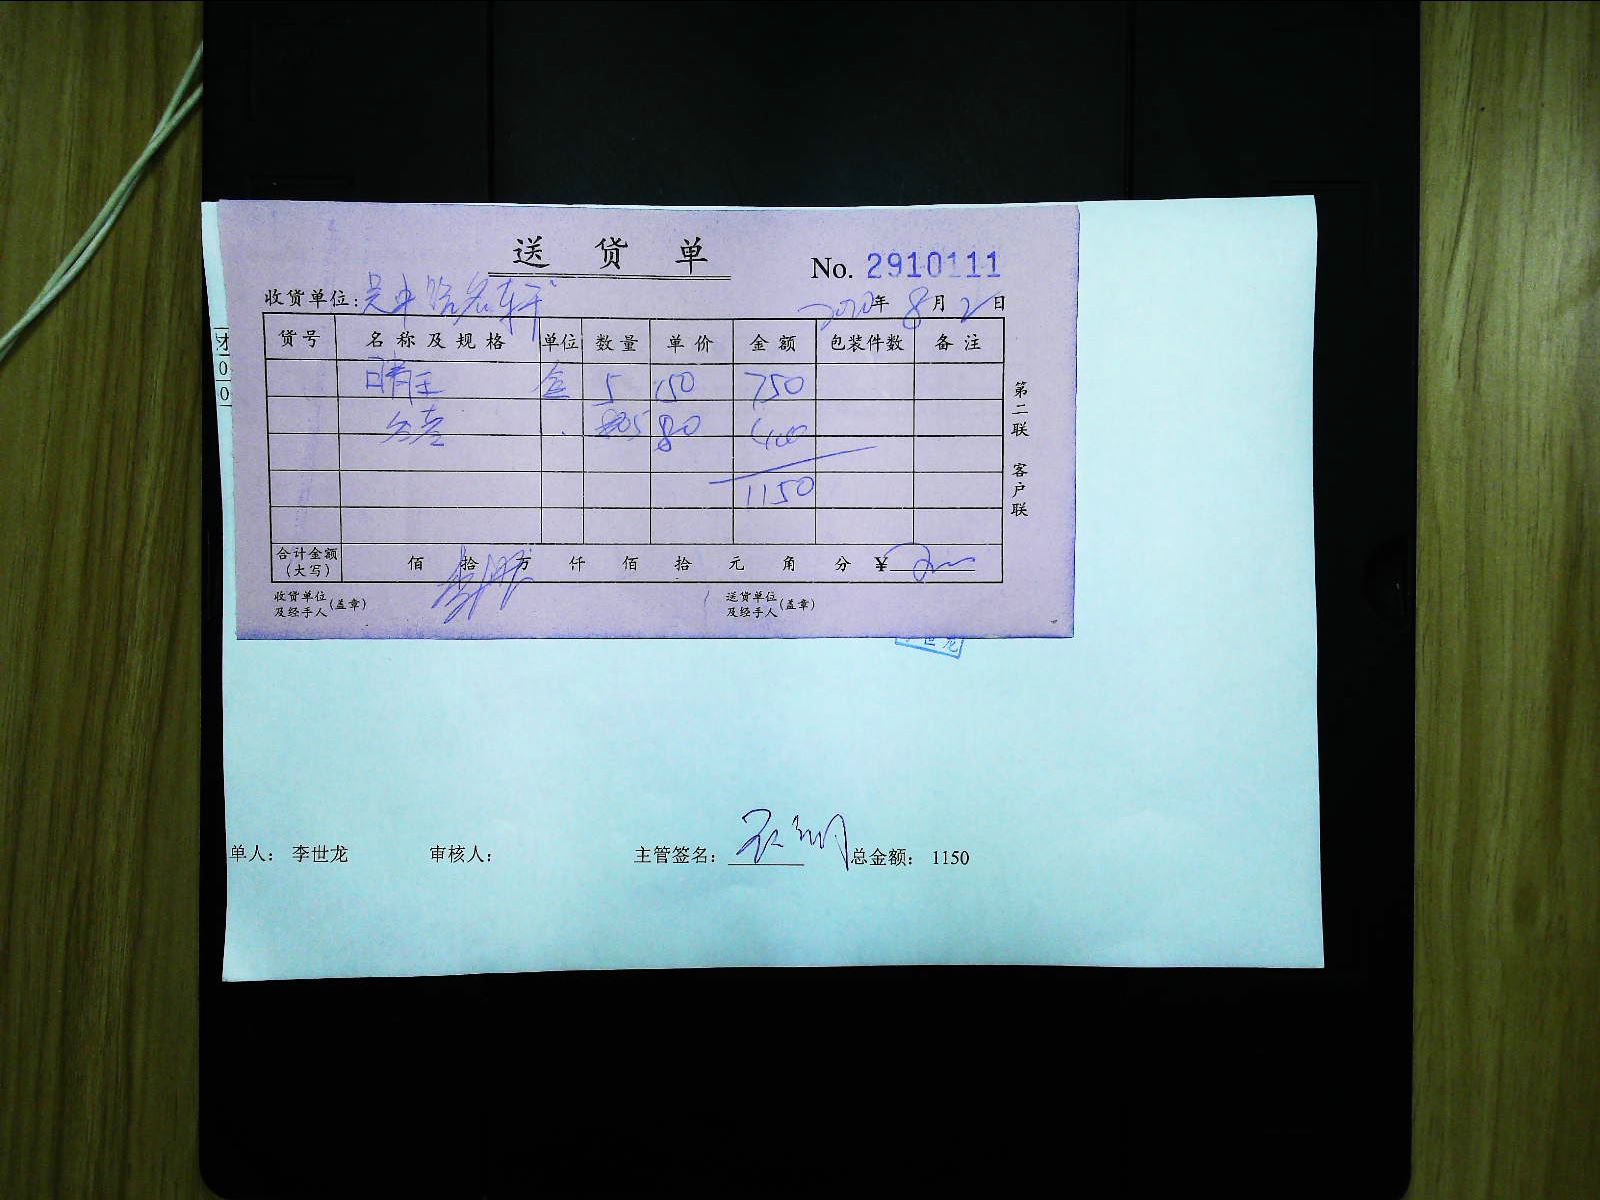 送 货 单
No. 2910111
收货单位: 吴中路名轩
2020年 8月 2日
货号 名称及规格 单位 数量 单价 金额 包装件数 备注
晴王 盒 5 150 750
5 80 400
1150
合计金额(大写) 佰 拾 万 仟 佰 拾 元 角 分 ¥
收货单位及经手人(盖章) 送货单位及经手人(盖章)
第二联 客户联
世龙
单人: 李世龙 审核人: 主管签名: 总金额: 1150